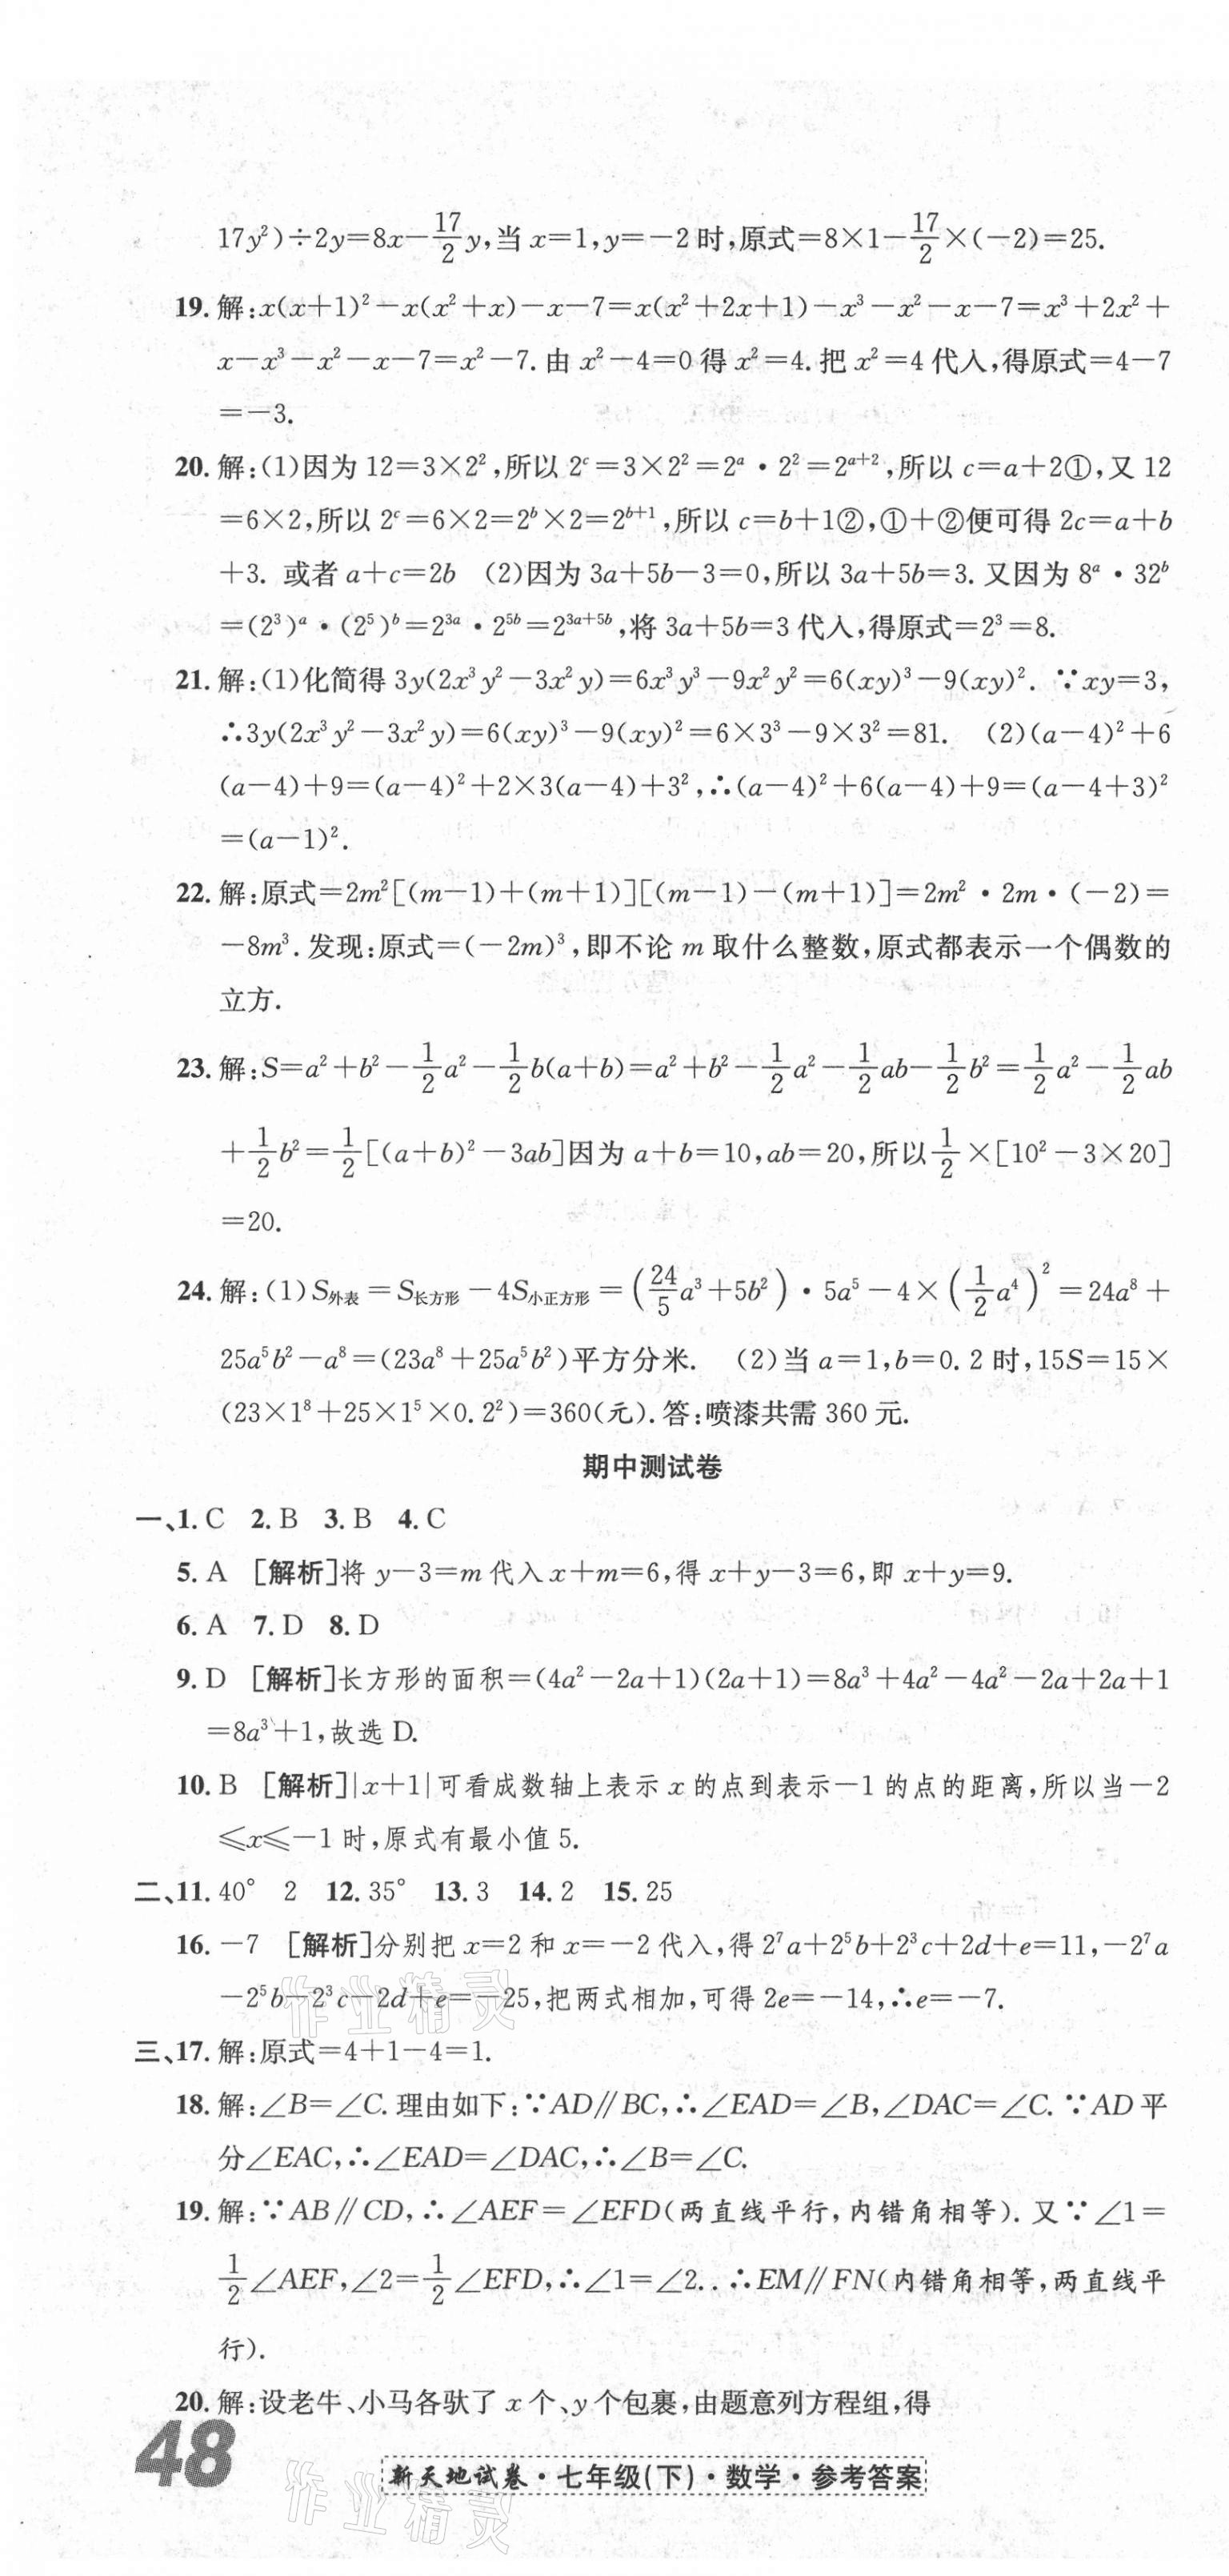 17y²)÷2y=8x-17/2y,当 x=1,y=-2 时,原式=8×1-17/2×(-2)=25.
19. 解:x(x+1)²-x(x²+x)-x-7=x(x²+2x+1)-x³-x²-x-7=x³+2x²+
x-x³-x²-x-7=x²-7. 由 x²-4=0 得 x²=4. 把 x²=4 代入,得原式=4-7
=-3.
20. 解:(1)因为 12=3×2²,所以 2ᶜ=3×2²=2ᵃ·2²=2ᵃ⁺²,所以 c=a+2①,又 12
=6×2,所以 2ᶜ=6×2=2ᵇ×2=2ᵇ⁺¹,所以 c=b+1②,①+②便可得 2c=a+b
+3. 或者 a+c=2b (2)因为 3a+5b-3=0,所以 3a+5b=3. 又因为 8ᵃ·32ᵇ
=(2³)ᵃ·(2⁵)ᵇ=2³ᵃ·2⁵ᵇ=2³ᵃ⁺⁵ᵇ,将 3a+5b=3 代入,得原式=2³=8.
21. 解:(1)化简得 3y(2x³y²-3x²y)=6x³y³-9x²y²=6(xy)³-9(xy)². ∵xy=3,
∴3y(2x³y²-3x²y)=6(xy)³-9(xy)²=6×3³-9×3²=81. (2)(a-4)²+6
(a-4)+9=(a-4)²+2×3(a-4)+3²,∴(a-4)²+6(a-4)+9=(a-4+3)²
=(a-1)².
22. 解:原式=2m²[(m-1)+(m+1)][(m-1)-(m+1)]=2m²·2m·(-2)=
-8m³. 发现:原式=(-2m)³,即不论 m 取什么整数,原式都表示一个偶数的
立方.
23. 解:S=a²+b²-1/2a²-1/2b(a+b)=a²+b²-1/2a²-1/2ab-1/2b²=1/2a²-1/2ab
+1/2b²=1/2[(a+b)²-3ab]因为 a+b=10,ab=20,所以1/2×[10²-3×20]
=20.
24. 解:(1)S外表=S长方形-4S小正方形=(24/5a³+5b²)·5a⁵-4×(1/2a⁴)²=24a⁸+
25a⁵b²-a⁸=(23a⁸+25a⁵b²)平方分米. (2)当 a=1,b=0.2 时,15S=15×
(23×1⁸+25×1⁵×0.2²)=360(元). 答:喷漆共需 360 元.
期中测试卷
一、1. C 2. B 3. B 4. C
5. A [解析]将 y-3=m 代入 x+m=6,得 x+y-3=6,即 x+y=9.
6. A 7. D 8. D
9. D [解析]长方形的面积=(4a²-2a+1)(2a+1)=8a³+4a²-4a²-2a+2a+1
=8a³+1,故选 D.
10. B [解析]|x+1|可看成数轴上表示 x 的点到表示-1 的点的距离,所以当-2
≤x≤-1 时,原式有最小值 5.
二、11. 40° 2 12. 35° 13. 3 14. 2 15. 25
16. -7 [解析]分别把 x=2 和 x=-2 代入,得 2⁷a+2⁵b+2³c+2d+e=11,-2⁷a
-2⁵b-2³c-2d+e=-25,把两式相加,可得 2e=-14,∴e=-7.
作业精灵
三、17. 解:原式=4+1-4=1.
18. 解:∠B=∠C. 理由如下:∵AD∥BC,∴∠EAD=∠B,∠DAC=∠C. ∵AD 平
分∠EAC,∴∠EAD=∠DAC,∴∠B=∠C.
19. 解:∵AB∥CD,∴∠AEF=∠EFD(两直线平行,内错角相等). 又∵∠1=
1/2∠AEF,∠2=1/2∠EFD,∴∠1=∠2. . ∴EM∥FN(内错角相等,两直线平
行).
20. 解:设老牛、小马各驮了 x 个、y 个包裹,由题意列方程组,得
48
新天地试卷·七年级(下)·数学·参考答案
作业精灵